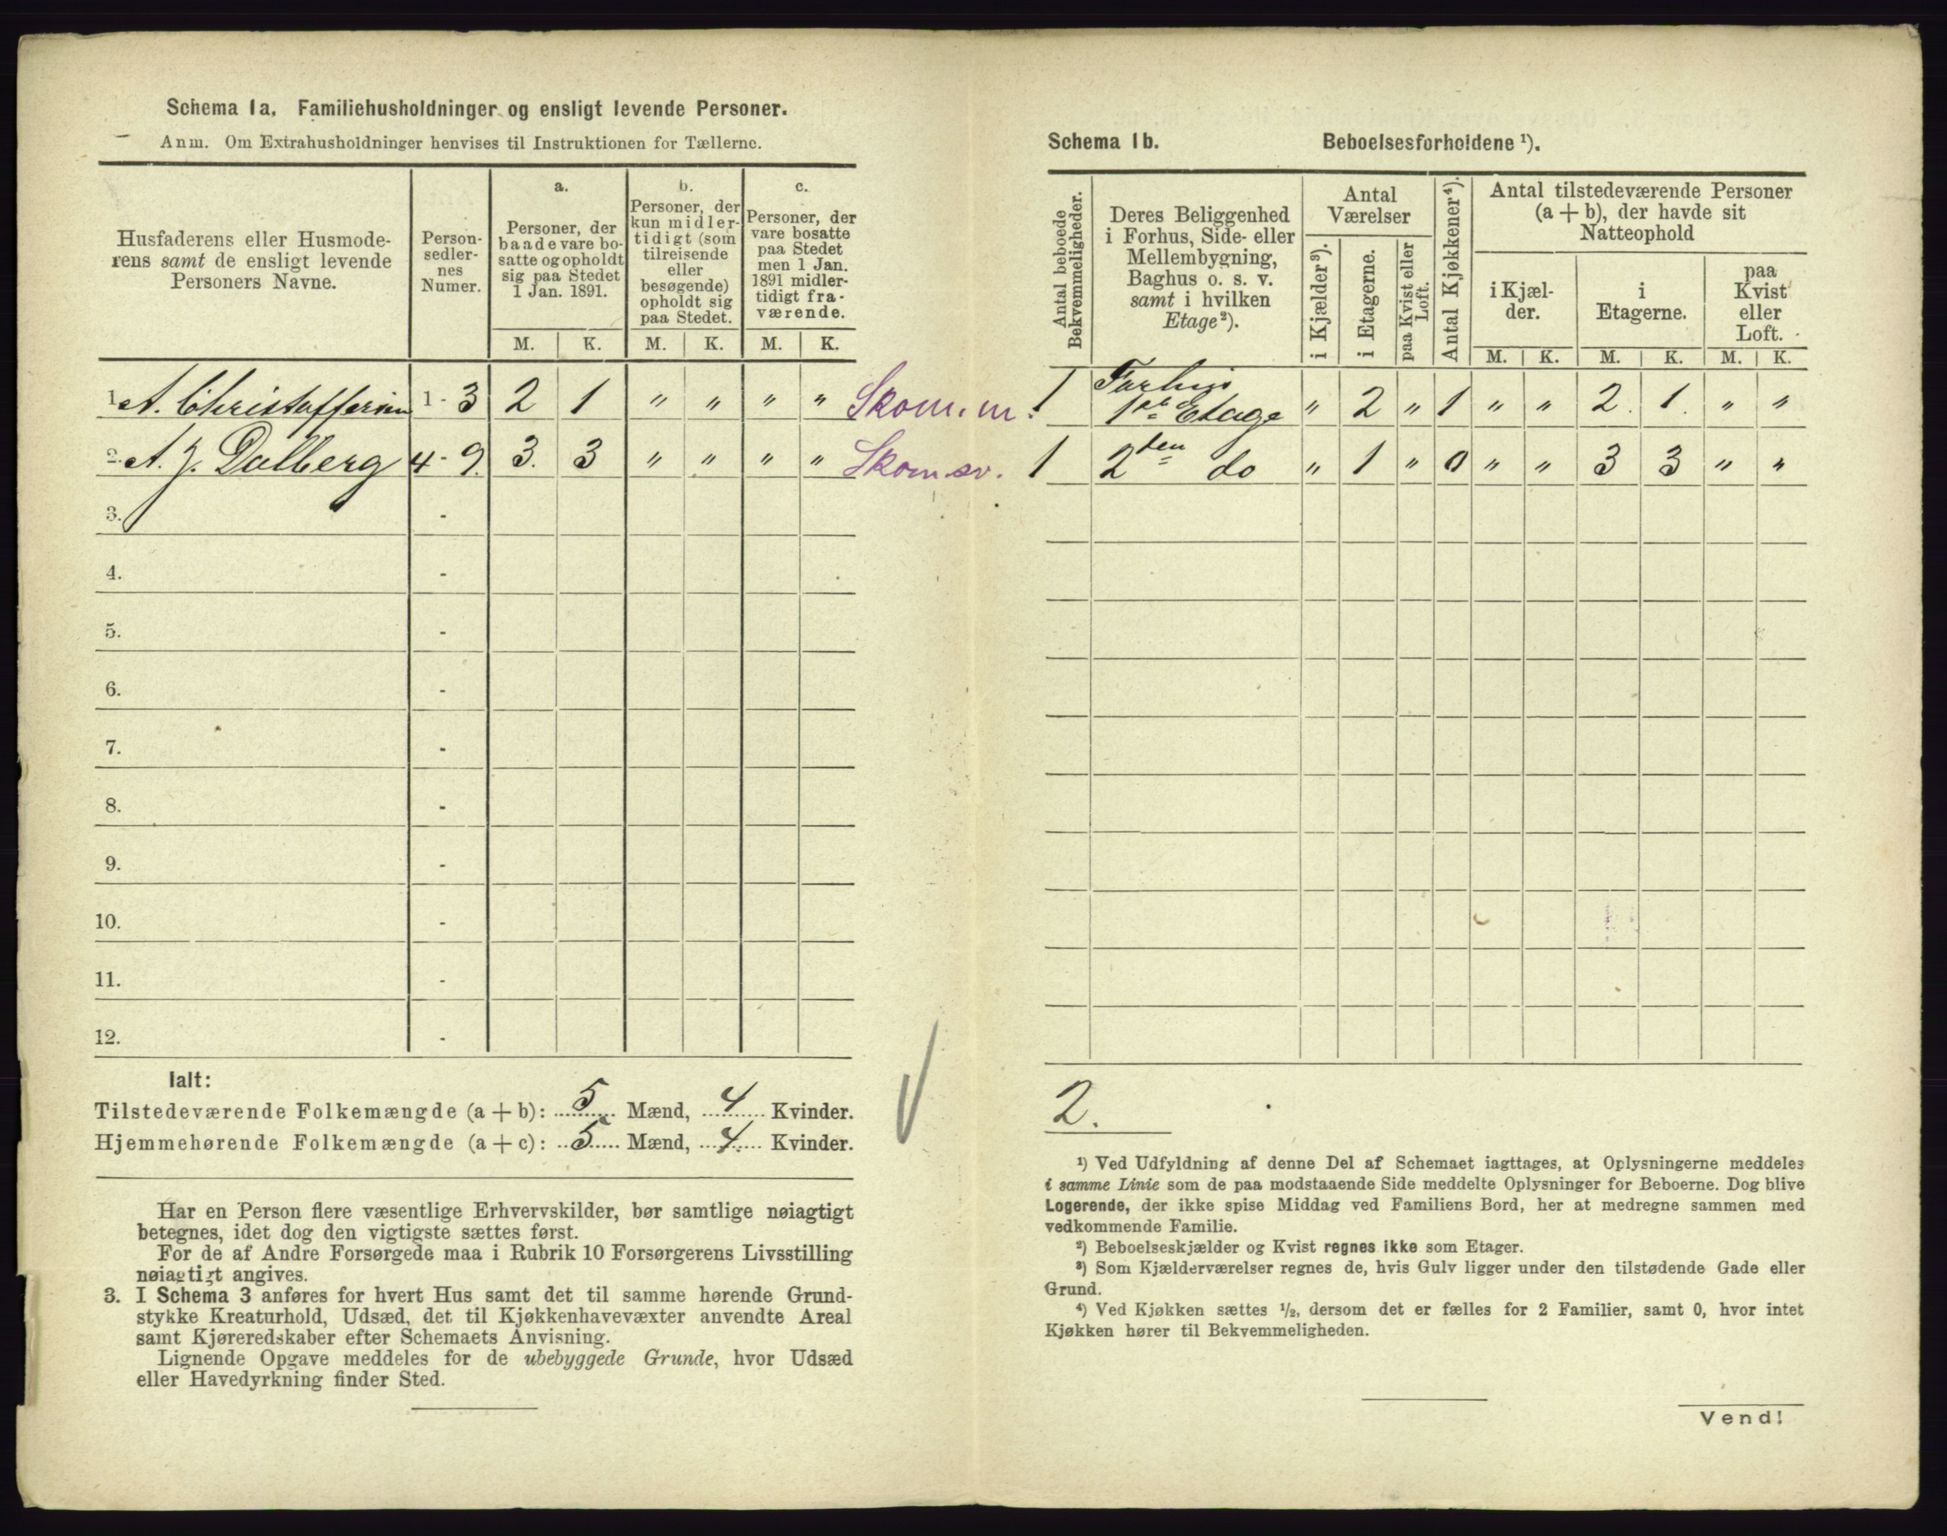 Schema 1a. Familiehusholdninger og ensligt levende Personer.
Anm. Om Extrahusholdninger henvises til Instruktionen for Tællerne.
Husfaderens eller Husmode-
rens samt de ensligt levende
Personers Navne.
Person-
sedler-
nes
Numer.
a.
Personer, der
baade vare bo-
satte og opholdt
sig paa Stedet
1 Jan. 1891.
b.
Personer, der
kun midler-
tidigt (som
tilreisende
eller
besøgende)
opholdt sig
paa Stedet.
c.
Personer, der
vare bosatte
paa Stedet
men 1 Jan.
1891 midler-
tidigt fra-
værende.
M. K. M. K. M. K.
1. A. Christoffersen 1 - 3 2 1 " " " " Skom.m.
2. A. J. Dalberg 4 - 9. 3. 3 " " " " Skom.sv.
3. -
4. -
5. -
6. -
7. -
8. -
9. -
10. -
11. -
12. -
Ialt:
Tilstedeværende Folkemængde (a + b): 5 Mænd, 4 Kvinder.
Hjemmehørende Folkemængde (a + c): 5 Mænd, 4. Kvinder.
Har en Person flere væsentlige Erhvervskilder, bør samtlige nøiagtigt
betegnes, idet dog den vigtigste sættes først.
For de af Andre Forsørgede maa i Rubrik 10 Forsørgerens Livsstilling
nøiagtigt angives.
3. I Schema 3 anføres for hvert Hus samt det til samme hørende Grund-
stykke Kreaturhold, Udsæd, det til Kjøkkenhavevæxter anvendte Areal
samt Kjøreredskaber efter Schemaets Anvisning.
Lignende Opgave meddeles for de ubebyggede Grunde, hvor Udsæd
eller Havedyrkning finder Sted.
Schema 1b. Beboelsesforholdene ¹).
Antal beboede
Bekvemmeligheder.
Deres Beliggenhed
i Forhus, Side- eller
Mellembygning,
Baghus o. s. v.
samt i hvilken
Etage²).
Antal
Værelser
i Kjælder³).
i Etagerne.
paa Kvist eller
Loft.
Antal Kjøkkener⁴).
Antal tilstedeværende Personer
(a + b), der havde sit
Natteophold
i Kjæl-
der.
i
Etagerne.
paa
Kvist
eller
Loft.
M. K. M. K. M. K.
1 Forhus
1ste Etage " 2 " 1 " " 2. 1. " "
1 2den do " 1 " 0 " " 3 3 " "
2.
¹) Ved Udfyldning af denne Del af Schemaet iagttages, at Oplysningerne meddeles
i samme Linie som de paa modstaaende Side meddelte Oplysninger for Beboerne. Dog blive
Logerende, der ikke spise Middag ved Familiens Bord, her at medregne sammen med
vedkommende Familie.
²) Beboelseskjælder og Kvist regnes ikke som Etager.
³) Som Kjælderværelser regnes de, hvis Gulv ligger under den tilstødende Gade eller
Grund.
⁴) Ved Kjøkken sættes ½, dersom det er fælles for 2 Familier, samt 0, hvor intet
Kjøkken hører til Bekvemmeligheden.
Vend!